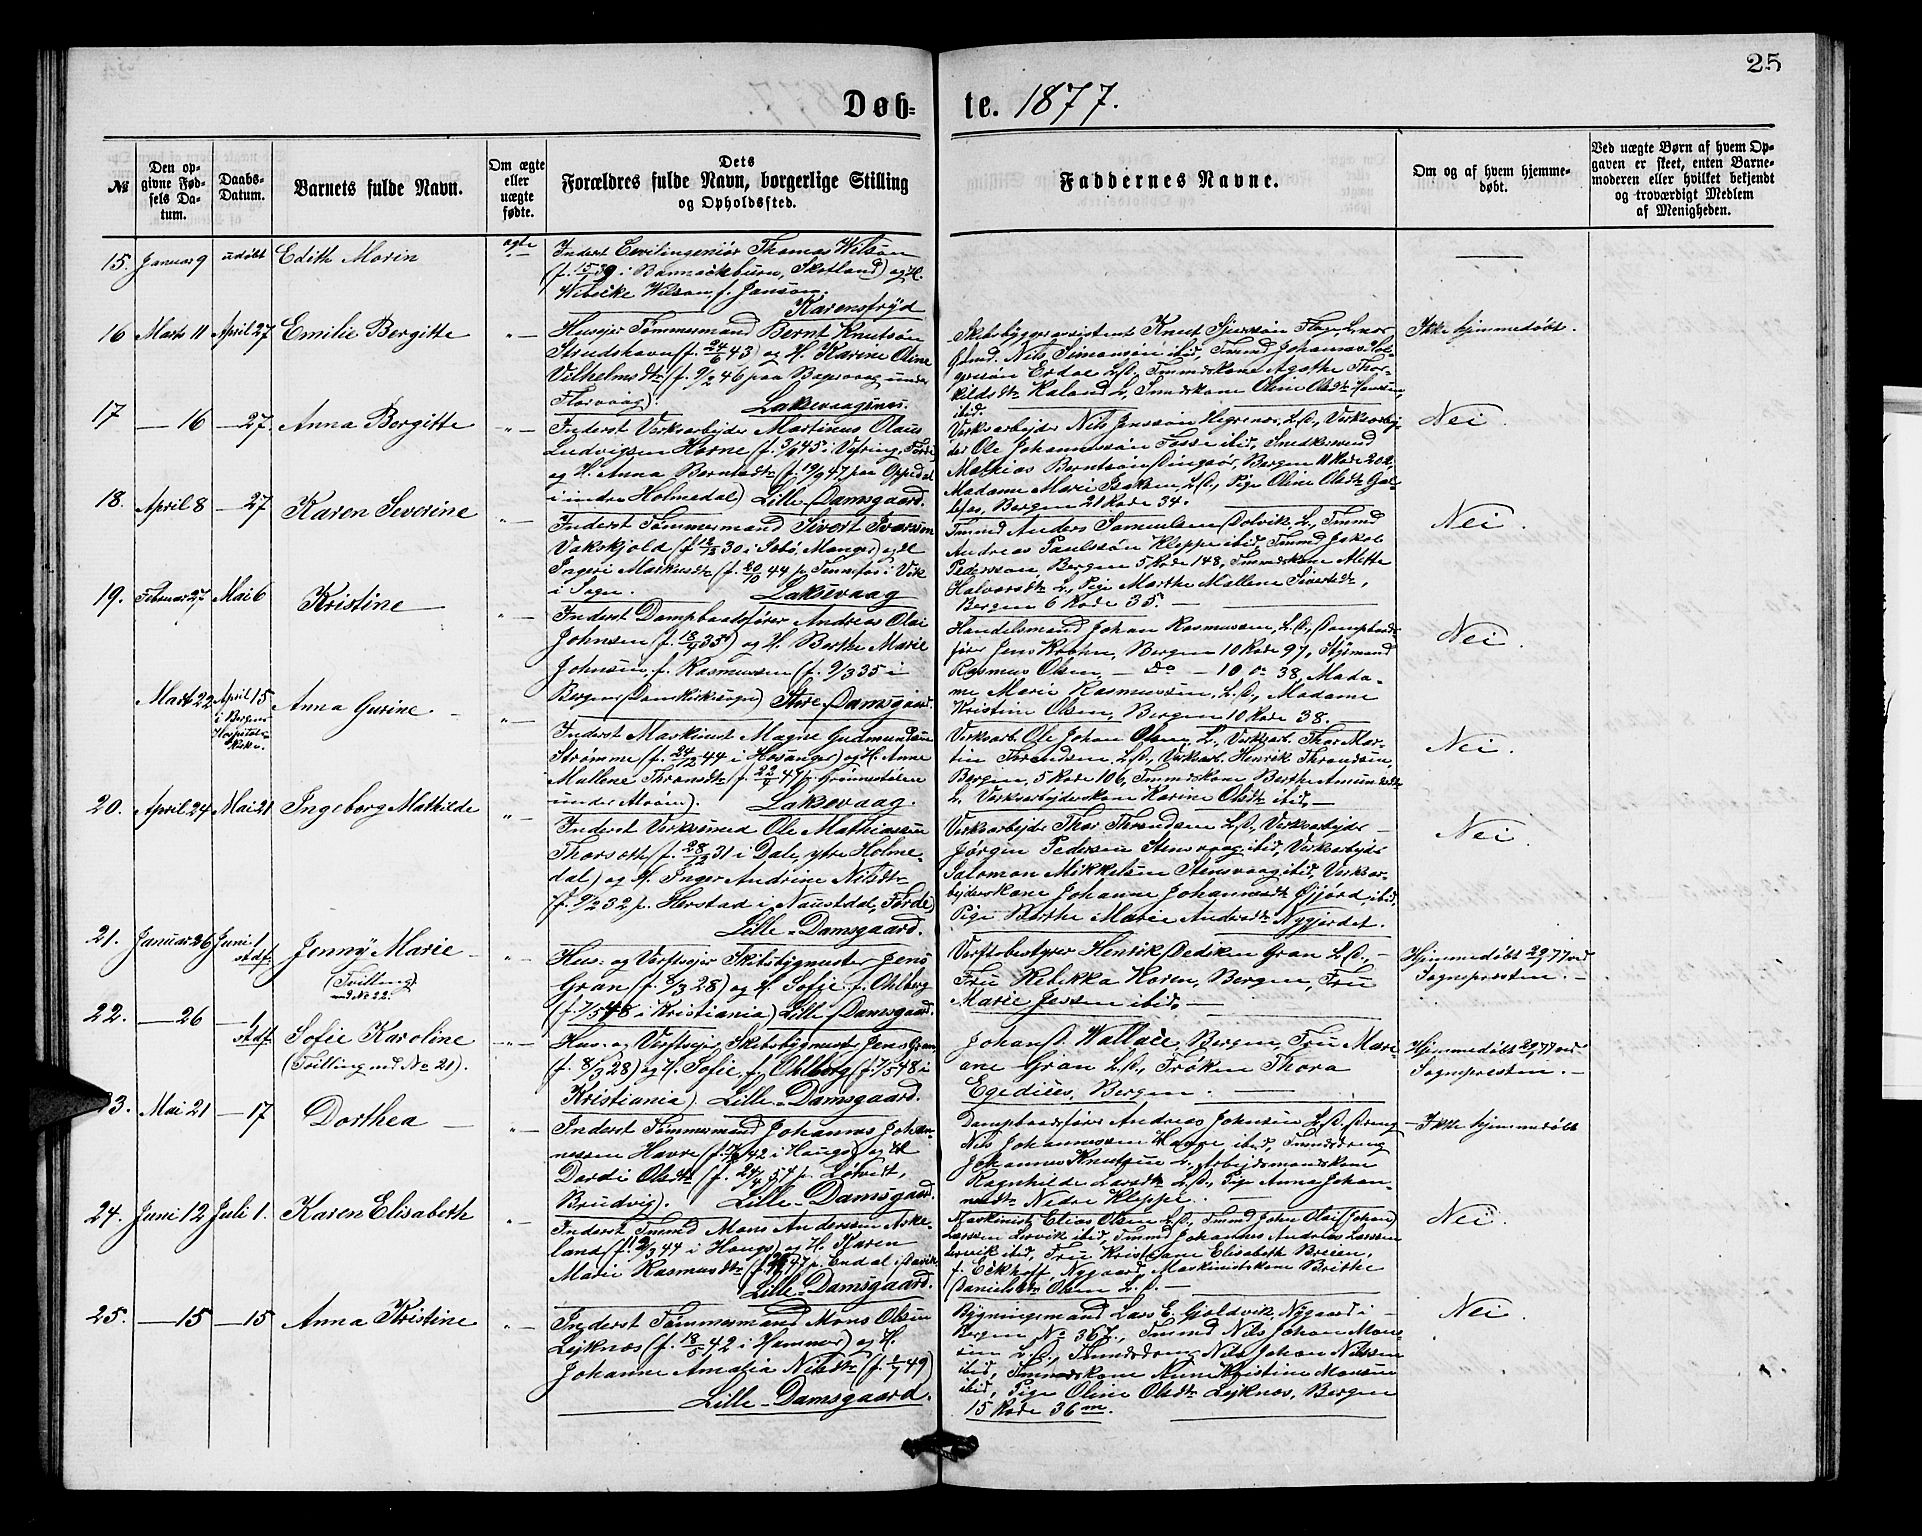 25
Døb- te. 1877.
№
Den op-
givne Fød-
sels Da-
tum.
Daabs-
Datum.
Barnets fulde Navn.
Om ægte
eller
uægte
fødte.
Dets
Forældres fulde Navn, borgerlige Stilling
og Opholdssted.
Faddernes Navne.
Om og af hvem hjemme-
døbt.
Ved uægte Børn af hvem Op-
gaven er skeet, enten Barne-
moderen eller hvilket bekjendt
og troværdigt Medlem
af Menigheden.
15. Januar 9 udøbt Edith Marin ægte
Inderst Civilingeniør Thomas Wilson
(f. 15/5 39 i Bannockburn, Skotland) og H.
Wibecke Wilson f. Janson.
Karensfryd
16 Marts 11 April 27 Emilie Bergitte "
Husejer Tømmermand Bernt Knutsøn
Strudshavn (f. 24/6 43) og H. Karine Oline
Vilhelmsdtr (f. 9/2 46 paa Bogsvaag under
Florvaag). Laksevaagsnes.
Knut
Nils Simonsøn ibid, Tmmd Johannes
Erdal L.D., Tmmdskone Agathe Thor-
kildsdtr Haland L, Tmmdskone Oline Olsdtr Hansen
ibid.
Ikke hjemmedøbt.
17 — 16 — 27. Anna Bergitte "
Inderst Verksarbejder Martinus Olaus
Ludvigsen Horne (f. 3/4 45 i Vefring, Førde)
og H. Anna Berntsdtr (f. 19/9 47 paa Oppedal
i indre Holmedal) Lille Damsgaard.
Verksarbejder Nils Jenssøn Hegrenes, L.D., Verksarbej-
der Ole Johannessøn Fosse ibid, Snedkersvend
Mathias Berntsøn Dingsør, Bergen 11 Rode 202,
Madame Marie Bakken L.D., Pige Oline Olsdtr
Bergen 21 Rode 34.
Nei.
18. April 8 — 27 Karen Severine "
Inderst Tømmermand Sivert Ivarssen
Vakskjold (f. 12/3 30 i Sebø, Manger) og H.
Ingeri Markusdtr (f. 20/10 44 p. Tennefos i Vik
i Sogn. Laksevaag
Tmmd Anders Samuelsen Dolvik L., Tmmd
Andreas Paulssøn Kleppe ibid, Tmmd Jakob
Pederssøn Bergen 5 Rode 148, Tmmdskone Mette
Halvorsdtr L., Pige Marthe Mallene Sivertsdtr,
Bergen 6 Rode 35. —
Nei.
19. Februar 27 Mai 6 Kristine "
Inderst Dampbaadsfører Andreas Olai
Johnsen (f. 18/4 35) og H. Berthe Marie
Johnsen f. Rasmussen (f. 9/3 35 i
Bergen (Domkirkesogn) Store Damsgaard
Handelsmand Johan Rasmussen, L.D., Dampbaads-
fører Jens Krohn, Bergen 10 Rode 97, Styrmand
Rasmus Olsen — Do — 10 Do 38, Mada-
me Marie Rasmussen, L.D., Madame
Kristine Olsen, Bergen 10 Rode 38.
Nei.
Marts 22 April 15
i Bergens
Hospitals-
kirke.
Anna Gurine. — "
Inderst Maskinist Magne Gudmundsen
Strømme (f. 24/12 44 i Hosanger) og H. Anne
Mallene Thronsdtr (f. 22/7 47 p.
under Laksevaag.
Verksarb. Ole Johan Olsen L., Verksarb. Thor Mar-
tin Throndsen L.D., Verksarb. Henrik Throndsen,
Bergen, 5 Rode 106, Tmmdskone Berthe Amundsdtr
L., Verksarbejderskone Karine Olsdtr ibid. —
Nei.
20. April 24 Mai 21 Ingeborg Mathilde "
Inderst Verksmed Ole Mathiassen
Thorsoth (f. 28/12 31 i Dale, ytre Holme-
dal) og H. Inger Andrine Nilsdtr
(f. 9/2 32 p. Herstad i Naustdal, Førde)
Lille-Damsgaard.
Verksarbejder Thor Throndsen L.D., Verksarbejder —
Jørgen Pedersen Stensvaag ibid, Verksarbejder
Salomon Mikkelsen Stensvaag ibid, Verksar-
bejderskone Johanne Johannesdtr Gjørd ibid,
Pige Marthe Marie Andersdtr Nygjerdet.
Nei.
21. Januar 26 Juni 1
stdf. Jenny Marie —
(Tvilling
med № 22. "
Hus- og Verftsejer Skibsbygmester Jens
Gran (f. 8/3 28) og H. Sofie f. Ohlberg
(f. 7/5 48 i Kristiania) Lille Damsgaard.
Verftsbestyrer Henrik Dedeken Gran L.D., —
Fru Rebekka Horen, Bergen, Fru
Marie Jessen ibid. —
Hjemmedøbt 2/2 77 ved
Sognepresten. —
22. — 26 — 1
stdf. Sofie Karoline
(Tvilling med № 21). "
Hus- og Verftsejer Skibsbygmester Jens Gran
(f. 8/3 28) og H. Sofie f. Ohlberg (f. 7/5 48 i
Kristiania) Lille-Damsgaard.
Johan D. Wallace, Bergen, Fru Mari-
ane Gran L.D., Frøken Thora
Egedius, Bergen. —
Hjemmedøbt 2/2 77 ved
Sognepresten. —
23. Mai 21 — 17 Dorthea — "
Inderst Tømmermand Johannes Johan-
nessen Havre (f. 42 i Haugs) og H.
Dordi Olsdtr (f. 24/4 54 p. Løtveit,
Brudvig). Lille-Damsgaard.
Dampbaadsfører Andreas Johnsen L.D. Dreng
Nils Johannessen Havre ibid, Tmmdsdreng
Johannes Knutsen L., Arbejdsmandskone
Ragnhilde Larsdtr L.D., Pige Anna Johan-
nesdtr Nedre Kleppe. —
— Ikke hjemmedøbt
24. Juni 12 Juli 1. Karen Elisabeth "
Inderst Tmmd Mons Anderssen Aske-
land (f. 44 i Haugs) og H. Karen
Marie Rasmusdtr (f. 47 p. Endal i Davik
Lille-Damsgaard.
Maskinist Elias Olsen L.D., Tmmd John Olai (Johan)
Larssen Lervik ibid Tmmd Johannes Andreas Larssen
Lervik ibid, Fru Kristiane Elisabeth Breien,
f. Eckhoff Nygaard, Maskinistskone Brithe
Danielsdtr Olsen L.D. —
Nei.
25. — 15 — 15 Anna Kristine "
Inderst Tømmermand Mons Olsen
Lejknes (f. 18/5 42 i Hammer) og H.
Johanne Amalia Nilsdtr (f. 49)
Lille-Damsgaard.
Bygningsmand Lars E. Gjeldvik, Nygaard i —
Bergen № 367., Tmmd Nils Johan Mons-
søn L.D., Tmmdsdreng Nils Johan Nilssen
ibid, Tmmdskone Anne Kristine Monsen
ibid, Pige Oline Olsdtr Lejknes, Bergen
15 Rode 36 m.
Nei.